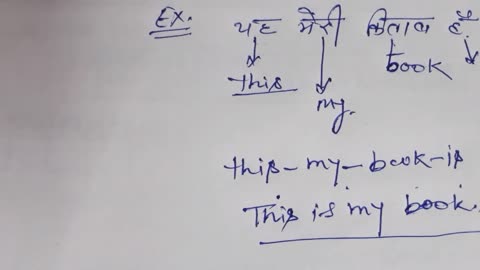 Ex. यह मेरी किताब है
this book
my.
this-my-book-is
This is my book.